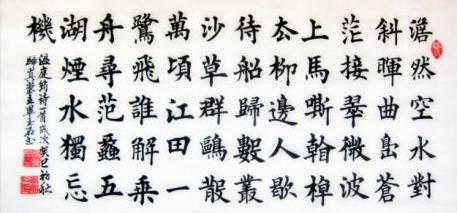 澹然空水對
斜暉曲島蒼
茫接翠微波
上馬嘶看棹
去柳邊人歇
待船歸數叢
沙草群鷗散
萬頃江田一
鷺飛誰解乘
舟尋范蠡五
湖煙水獨忘
機
溫庭筠诗一首歲次癸巳初秋
歸真堂主